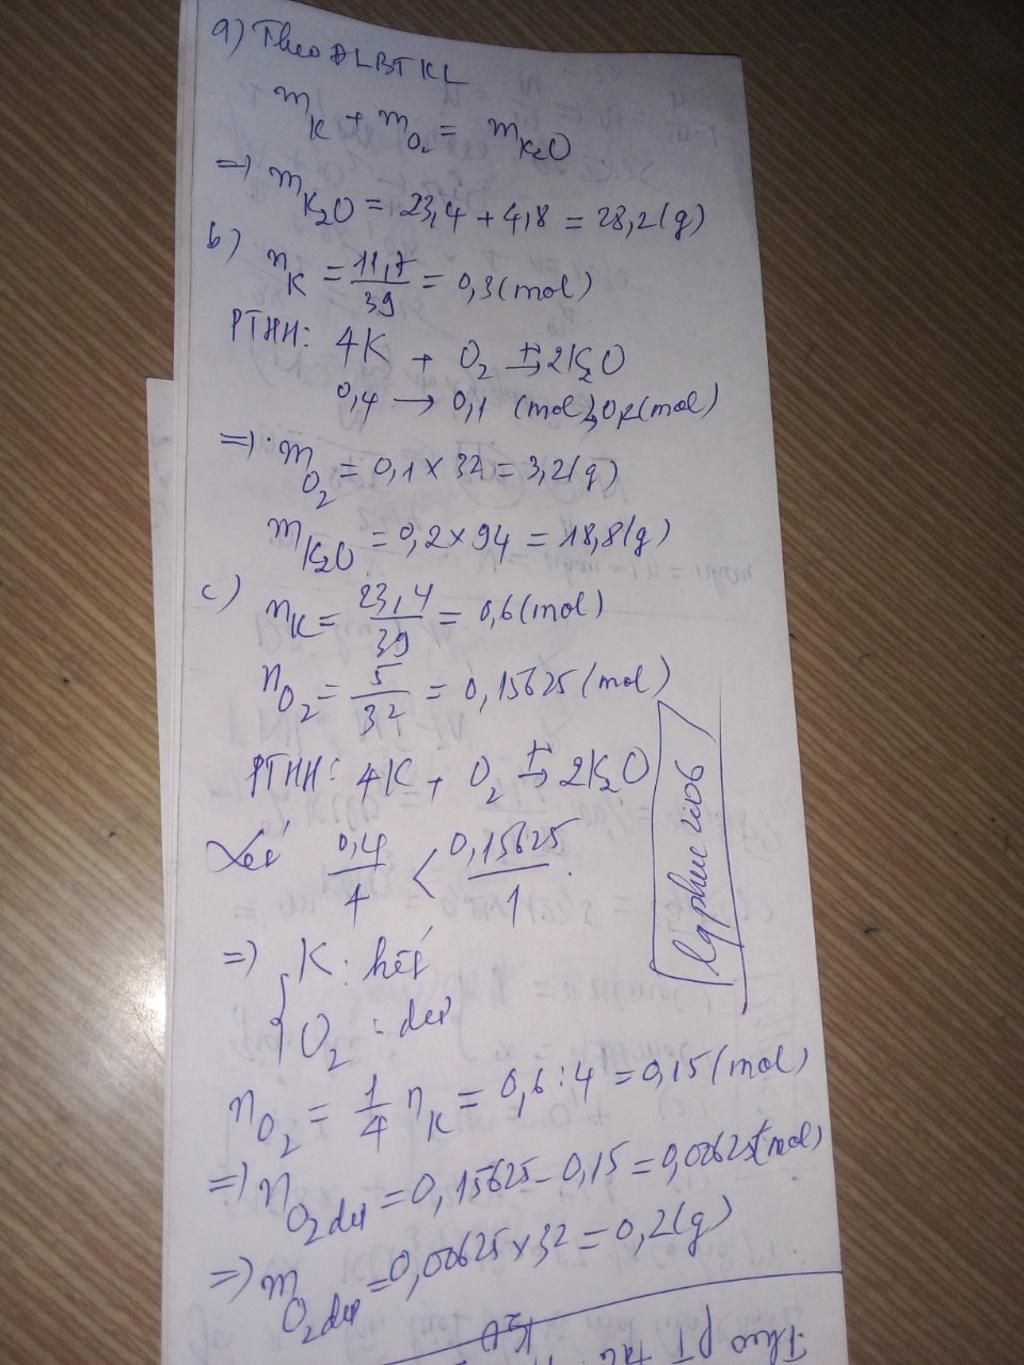 a) Theo ĐLBTKL
m_K + m_O₂ = m_K₂O
=> m_K₂O = 23,4 + 4,8 = 28,2 (g)
b) n_K = 11,7/39 = 0,3 (mol)
PTHH: 4K + O₂ →t 2K₂O
0,4 → 0,1 (mol) → 0,2 (mol)
=> m_O₂ = 0,1 x 32 = 3,2 (g)
m_K₂O = 0,2 x 94 = 18,8 (g)
c) n_K = 23,4/39 = 0,6 (mol)
n_O₂ = 5/32 = 0,15625 (mol)
PTHH: 4K + O₂ →t 2K₂O
Xét 0,4/4 < 0,15625/1
=> { K : hết
O₂ : dư
lqphuc2006
n_O₂ = 1/4 n_K = 0,6 : 4 = 0,15 (mol)
=> n_O₂ dư = 0,15625 - 0,15 = 0,00625 (mol)
=> m_O₂ dư = 0,00625 x 32 = 0,2 (g)
Theo pT
K₂O